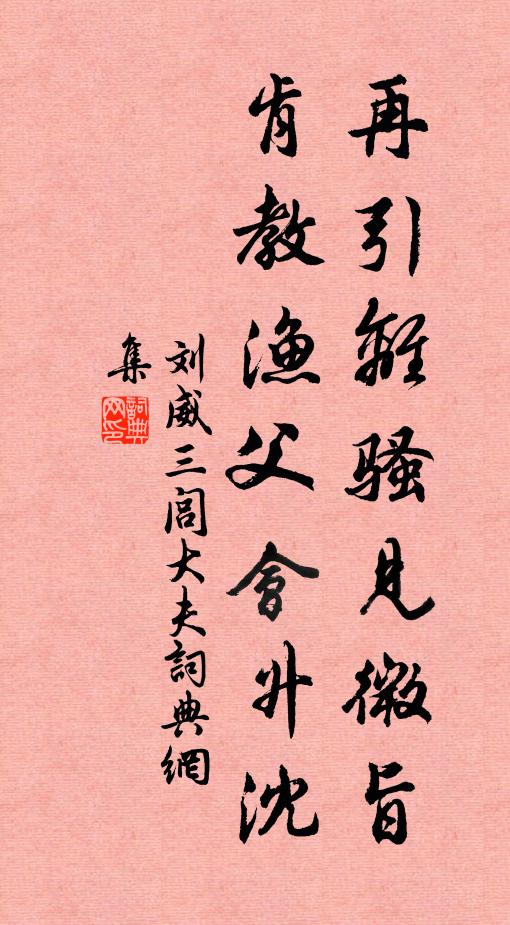 再引離騷見微旨
肯教漁父會升沈
刘威三閭大夫詞典網
集
詞典
网印